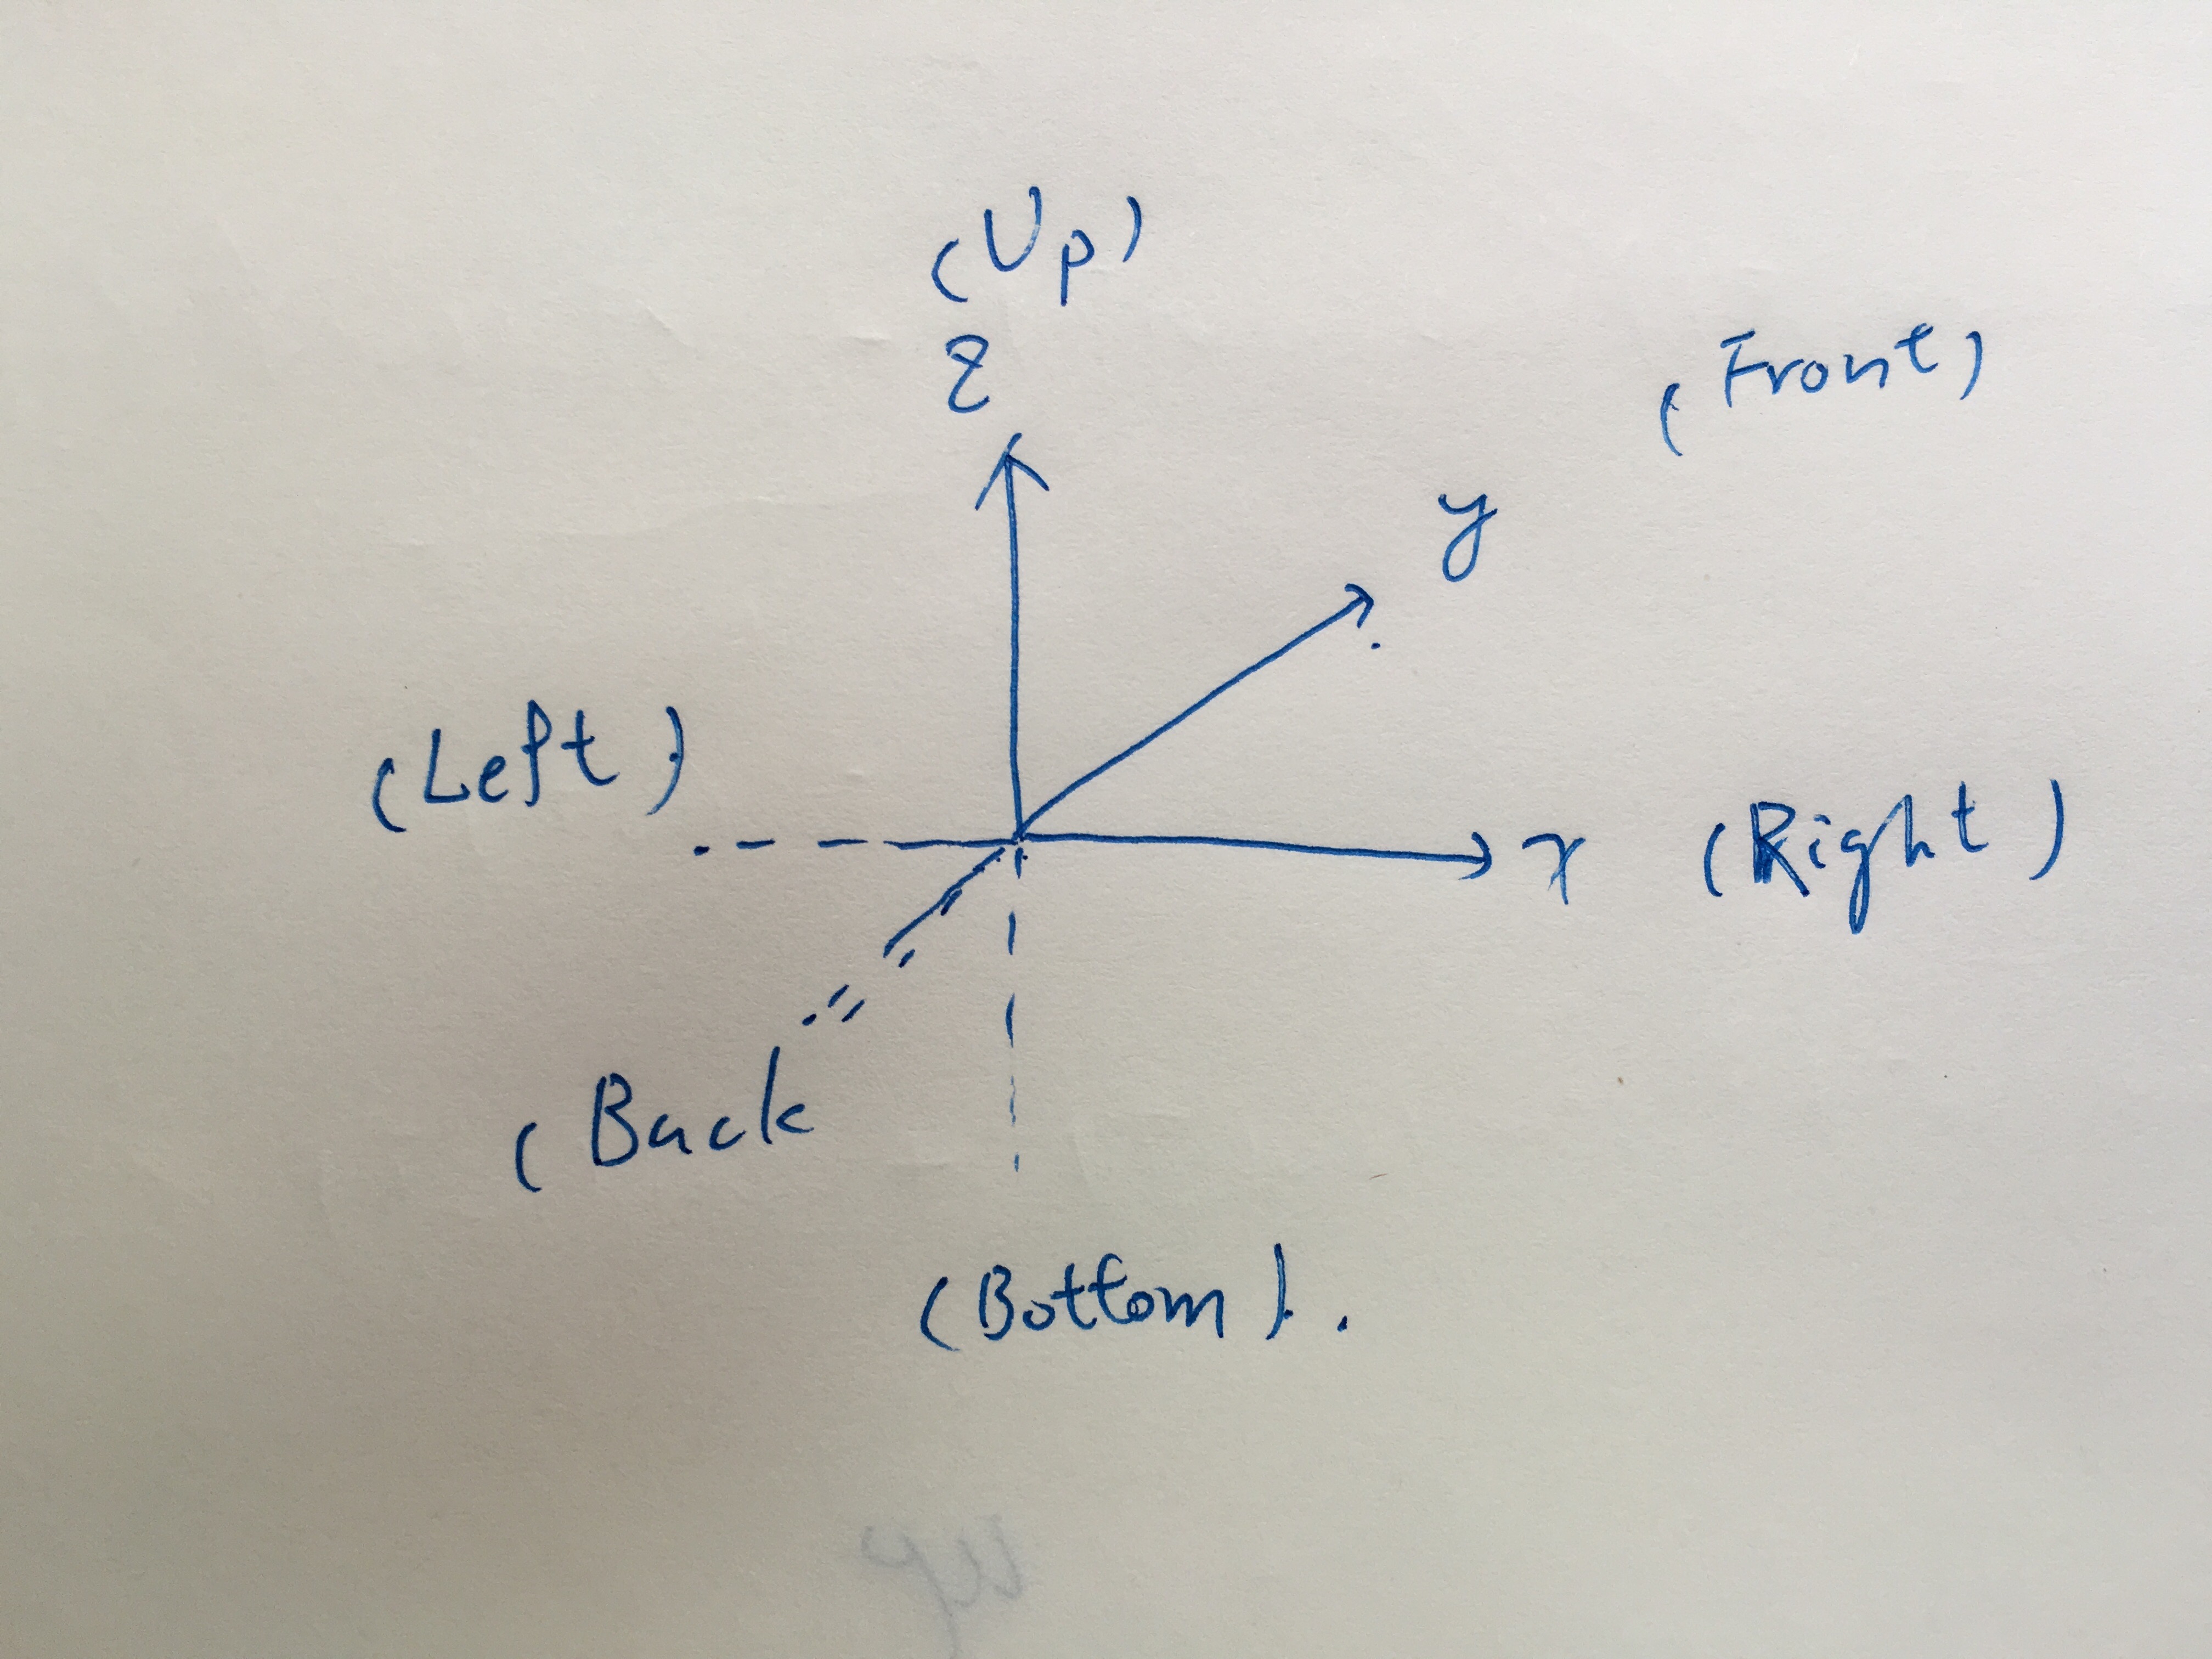 (Up)
z
(Front)
y
(Left)
x (Right)
(Back
(Bottom).
up